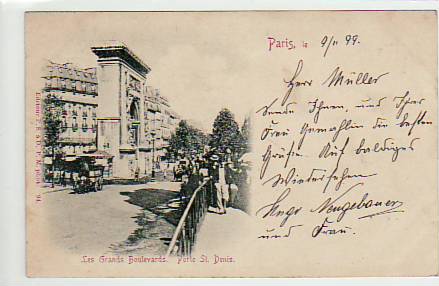 Paris, le 9/11 99.
Herr Müller
Sende Ihnen, und Ihrer
Frau Gemahlin die besten
Grüße. Auf baldiges
Wiedersehen
Hugo Neugebauer
und Frau.
Les Grands Boulevards. Porte St. Denis.